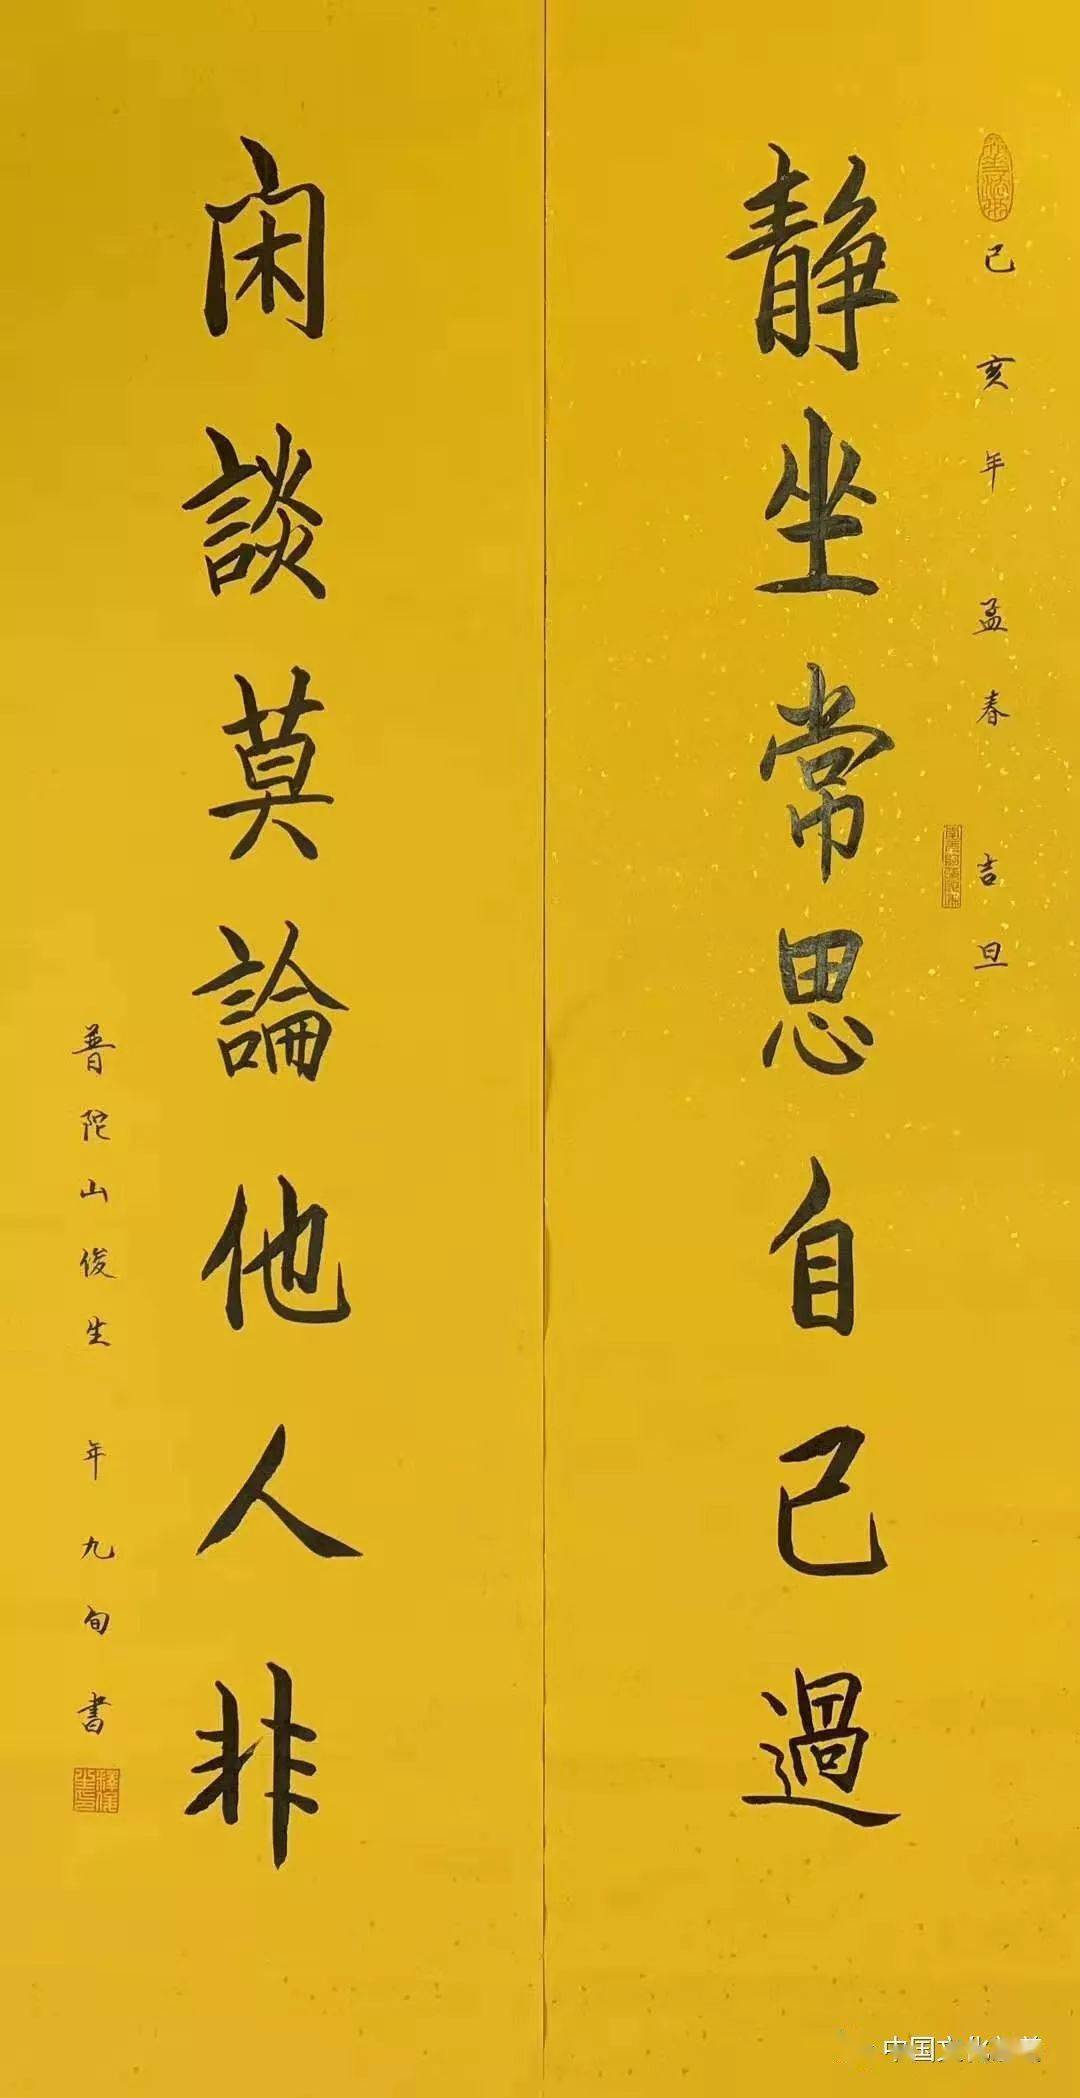 己亥年孟春 吉旦
静坐常思自己過
闲談莫論他人非
普陀山俊生 年九旬書
中国文化